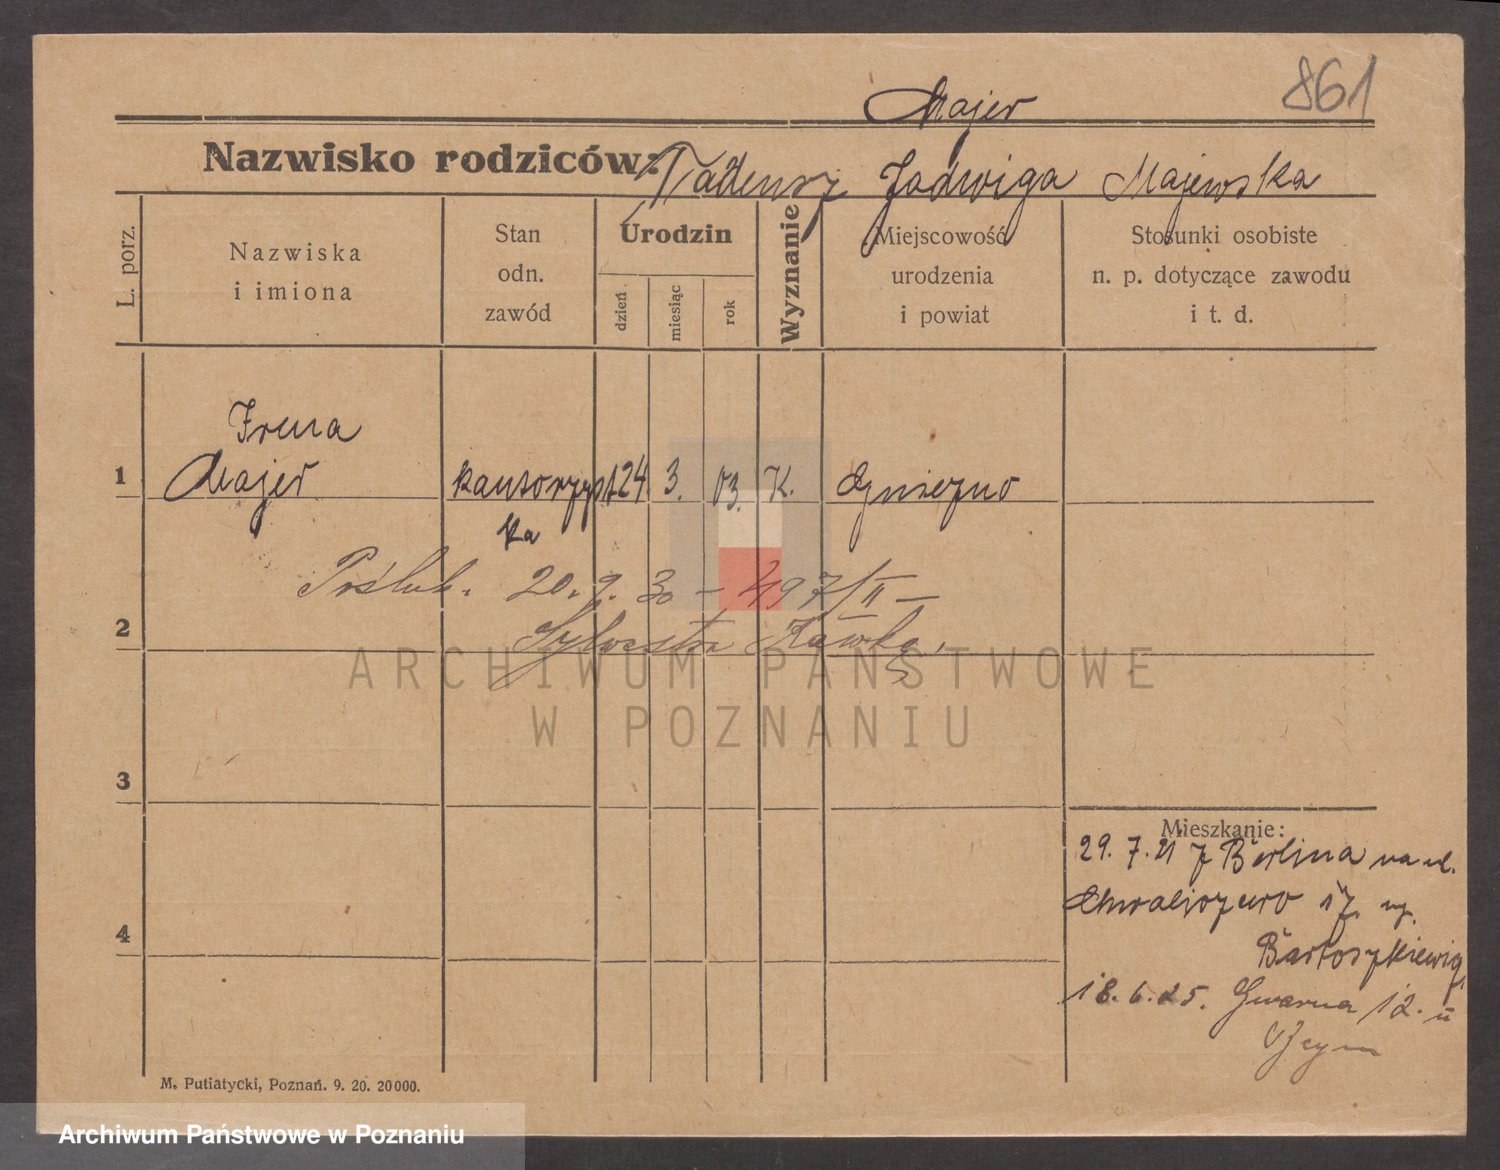 861
Majer
Nazwisko rodziców: Tadeusz Jadwiga Majewska
L. porz.
Nazwiska
i imiona
Stan
odn.
zawód
Urodzin
dzień
miesiąc
rok
Wyznanie
Miejscowość
urodzenia
i powiat
Stosunki osobiste
n. p. dotyczące zawodu
i t. d.
Irena
1 Majer kantorzyst 24 3. 03. K. Gniezno
ka
Poślub. 20. 9. 30 – 497/II –
2 Sylwestra Kawkę.
3
Mieszkanie:
29. 7. 21 z Berlina na ul.
Chwaliszewo 17. u p.
4
Bartoszkiewicz
18. 6. 25. Gwarna 12. u
M. Putiatycki, Poznań. 9. 20. 20000.
ARCHIWUM PAŃSTWOWE
W POZNANIU
Archiwum Państwowe w Poznaniu